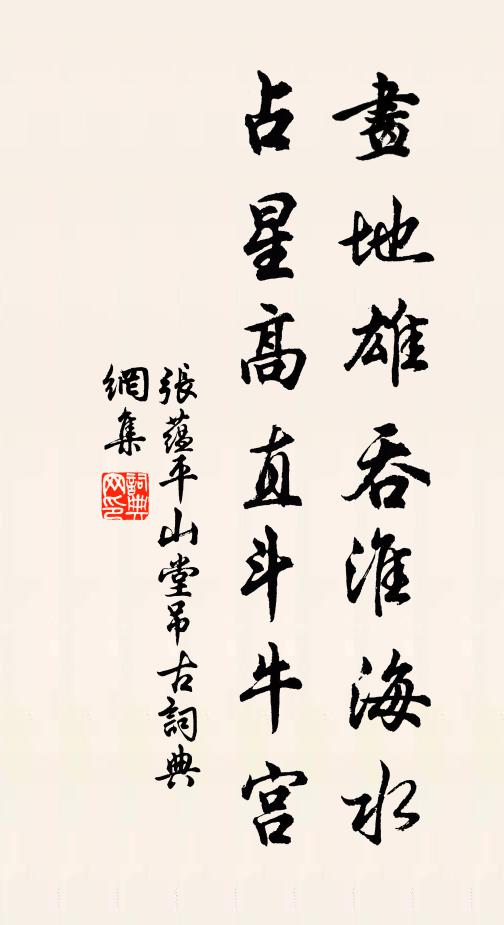 畫地雄吞淮海水
占星高直斗牛宮
張蘊平山堂吊古詞典
網集
詞典
网印